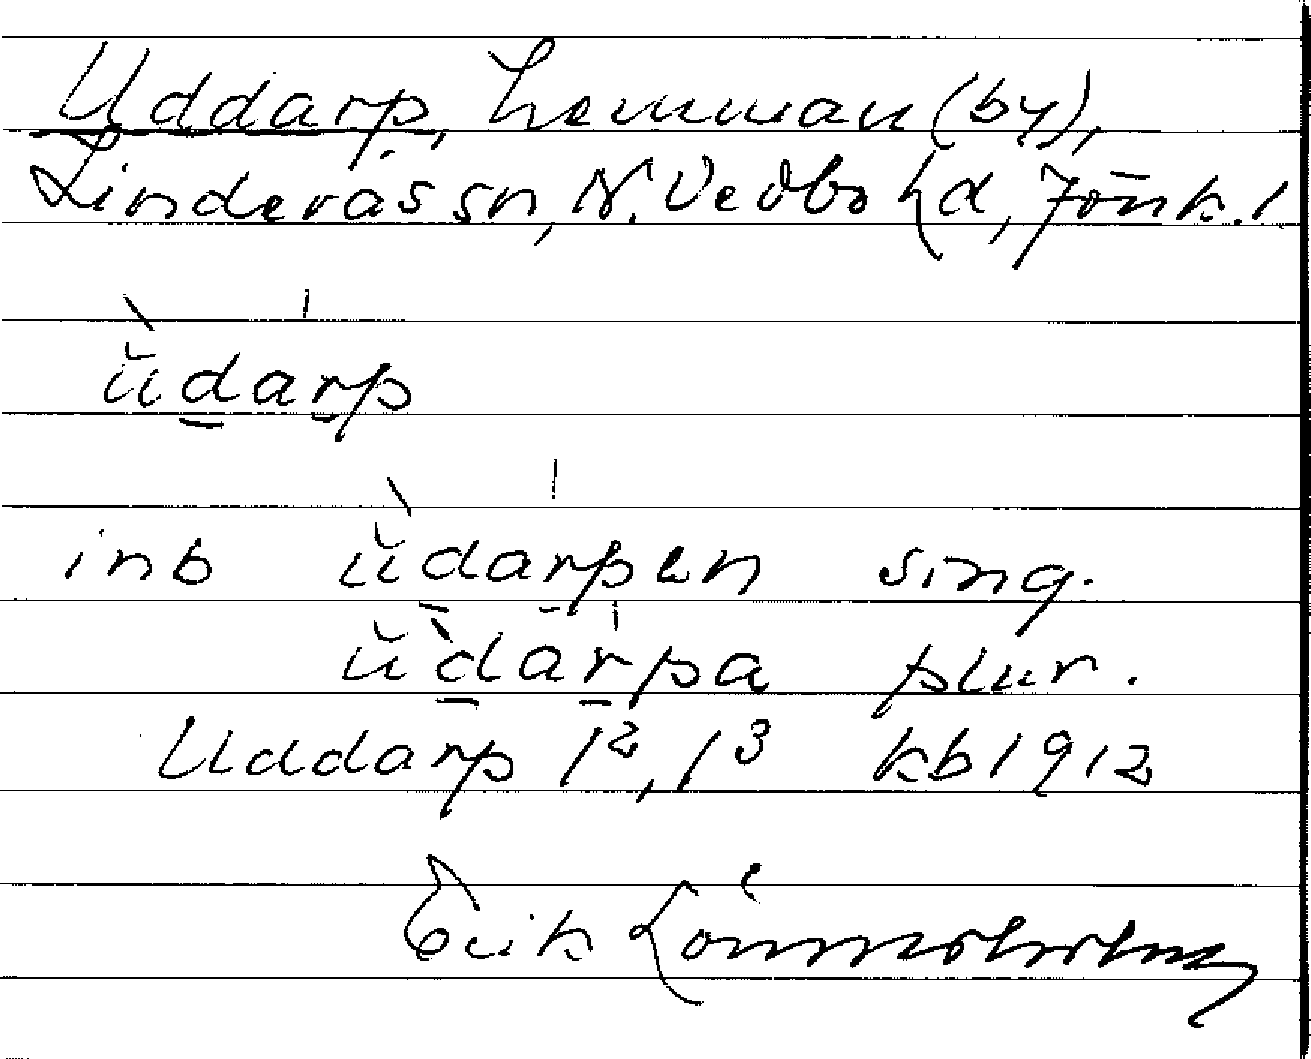 Uddarp, hemman (by),
Linderås sn, N. Vedbo hd, Jönk. l
ŭdarp
inb ŭdarpen sing.
ŭdarpa plur.
Uddarp 1², 1³ kb 1912
Erik